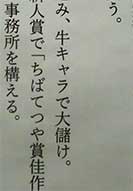 う。
み、牛キャラで大儲け。
人賞で「ちばてつや賞佳作
事務所を構える。